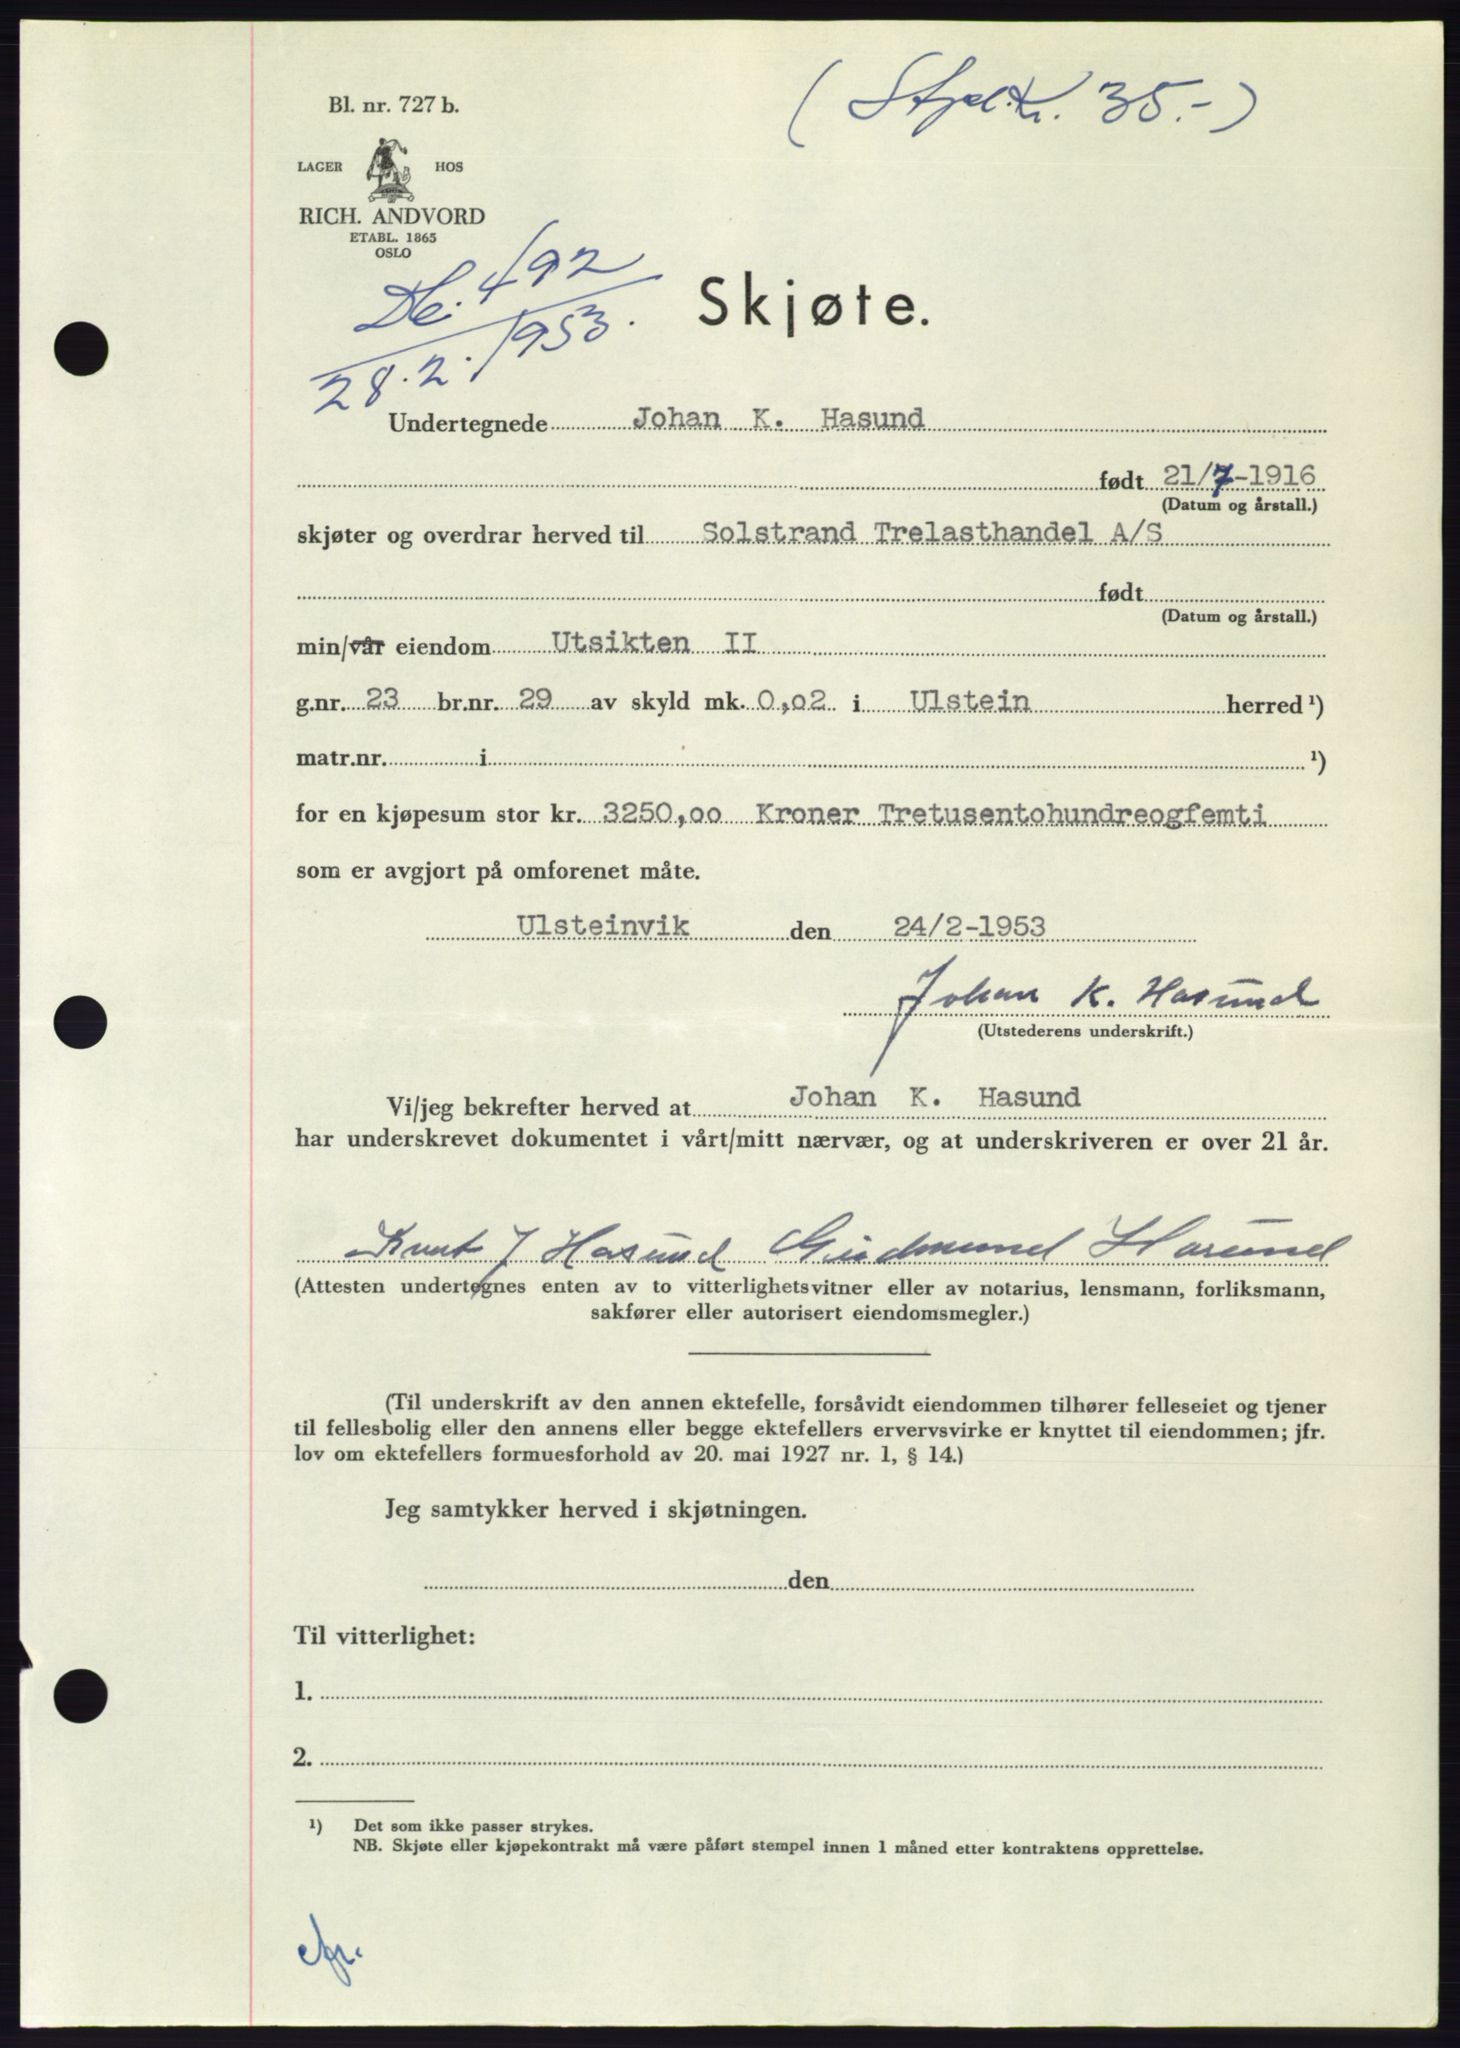 ( Stpl.kr. 35.- )
Bl. nr. 727 b.
LAGER HOS
RICH. ANDVORD
ETABL. 1865
OSLO
492
28.2.1953.
Skjøte.
Undertegnede Johan K. Hasund
født 21/7-1916
(Datum og årstall.)
skjøter og overdrar herved til Solstrand Trelasthandel A/S
født
(Datum og årstall.)
min/vår eiendom Utsikten II
g.nr. 23 br.nr. 29 av skyld mk. 0,02 i Ulstein herred ¹)
matr.nr. i ¹)
for en kjøpesum stor kr. 3250,00 Kroner Tretusentohundreogfemti
som er avgjort på omforenet måte.
Ulsteinvik den 24/2-1953
Johan K. Hasund
(Utstederens underskrift.)
Vi/jeg bekrefter herved at Johan K. Hasund
har underskrevet dokumentet i vårt/mitt nærvær, og at underskriveren er over 21 år.
Knut J Hasund Gudmund Hasund
(Attesten undertegnes enten av to vitterlighetsvitner eller av notarius, lensmann, forliksmann,
sakfører eller autorisert eiendomsmegler.)
(Til underskrift av den annen ektefelle, forsåvidt eiendommen tilhører felleseiet og tjener
til fellesbolig eller den annens eller begge ektefellers ervervsvirke er knyttet til eiendommen; jfr.
lov om ektefellers formuesforhold av 20. mai 1927 nr. 1, § 14.)
Jeg samtykker herved i skjøtningen.
den
Til vitterlighet:
1.
2.
¹) Det som ikke passer strykes.
NB. Skjøte eller kjøpekontrakt må være påført stempel innen 1 måned etter kontraktens opprettelse.